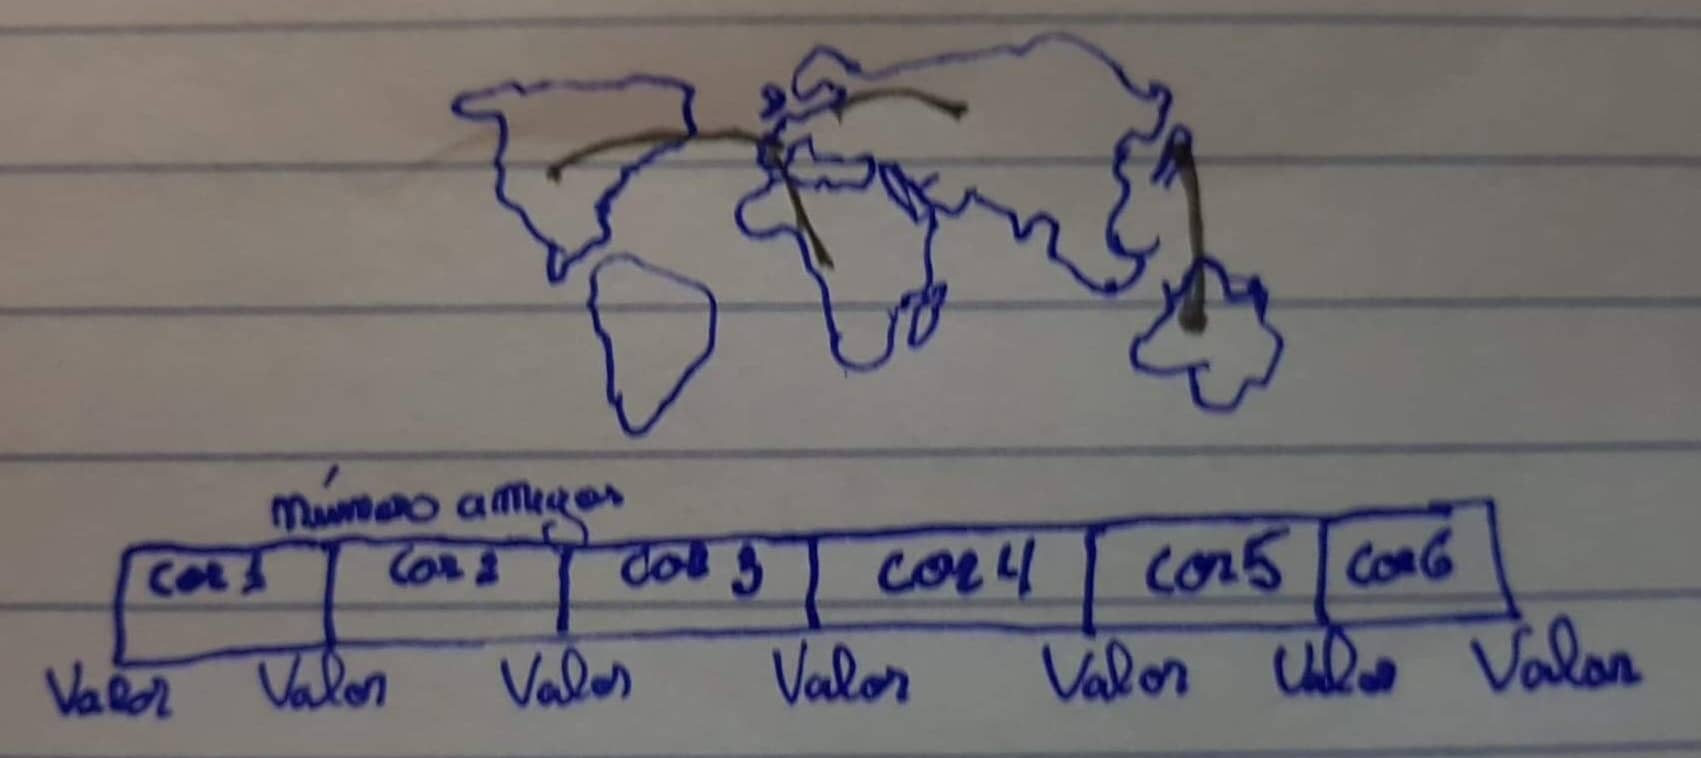 número ameças
cor 1 cor 2 cor 3 cor 4 cor 5 cor 6
Valor Valor Valor Valor Valor Valor Valor